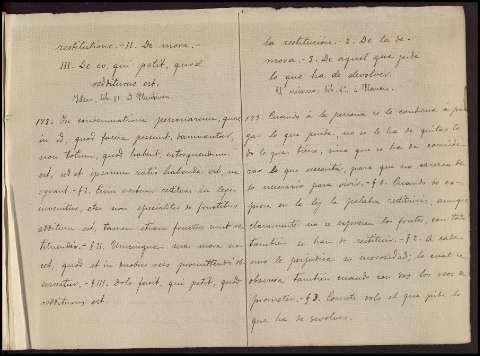 restitutione. - II. De mora. -
III. De eo, qui petit, quod
redditurus est.
Idem, lib. VI. ad Plautium.
173. In condemnatione personarum, quae
in id, quod facere possunt, damnantur,
non totum, quod habent, extorquendum
est, sed et ipsarum ratio habenda est, ne
egeant. - § I. Cum verbum restituas in lege
invenitur, etsi non specialiter de fructibus
additum est, tamen etiam fructus sunt res-
tituendi. - § II. Unicuique sua mora no-
cet, quod et in duobus reis promittendi ob-
servatur. - § III. Dolo facit, qui petit, quod
redditurus est.
la restitución. - 2. De la de-
mora. - 3. De aquel que pide
lo que ha de devolver.
El mismo, lib. 6., a Plaucio.
173. Cuando á la persona se le condena á pa-
gar lo que puede, no se le ha de quitar to-
do lo que tiene, sino que se ha de conside-
rar lo que necesita, para que no carezca de
lo necesario para vivir. - § 1. Cuando se ex-
presa en la ley la palabra restituir, aunque
claramente no se expresen los frutos, con todo
también se han de restituir. - § 2. A cada
uno le perjudica su morosidad; lo cual se
observa también cuando son dos los reos á
prometer. - § 3. Comete dolo el que pide lo
que ha de devolver.